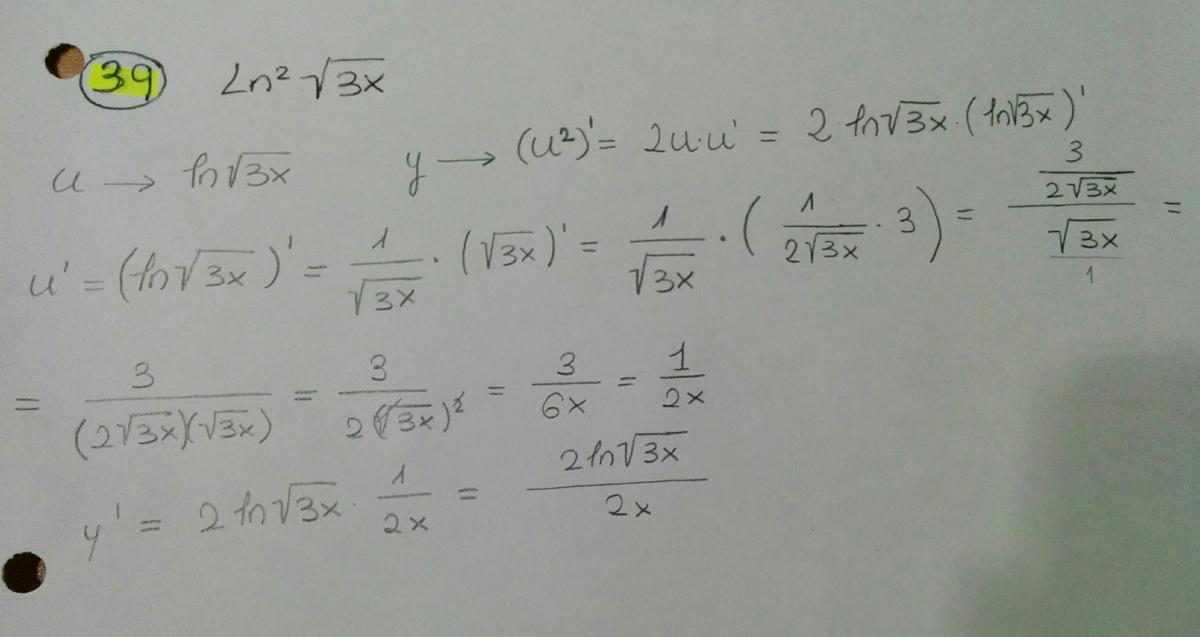 39 Ln² √3x
u → ln√3x y → (u²)' = 2u·u' = 2·ln√3x·(ln√3x)'
u' = (ln√3x)' = 1/√3x · (√3x)' = 1/√3x · (1/2√3x · 3) = (3/2√3x)/(√3x/1) =
= 3/(2√3x)(√3x) = 3/2(√3x)² = 3/6x = 1/2x
y' = 2 ln√3x · 1/2x = 2ln√3x/2x